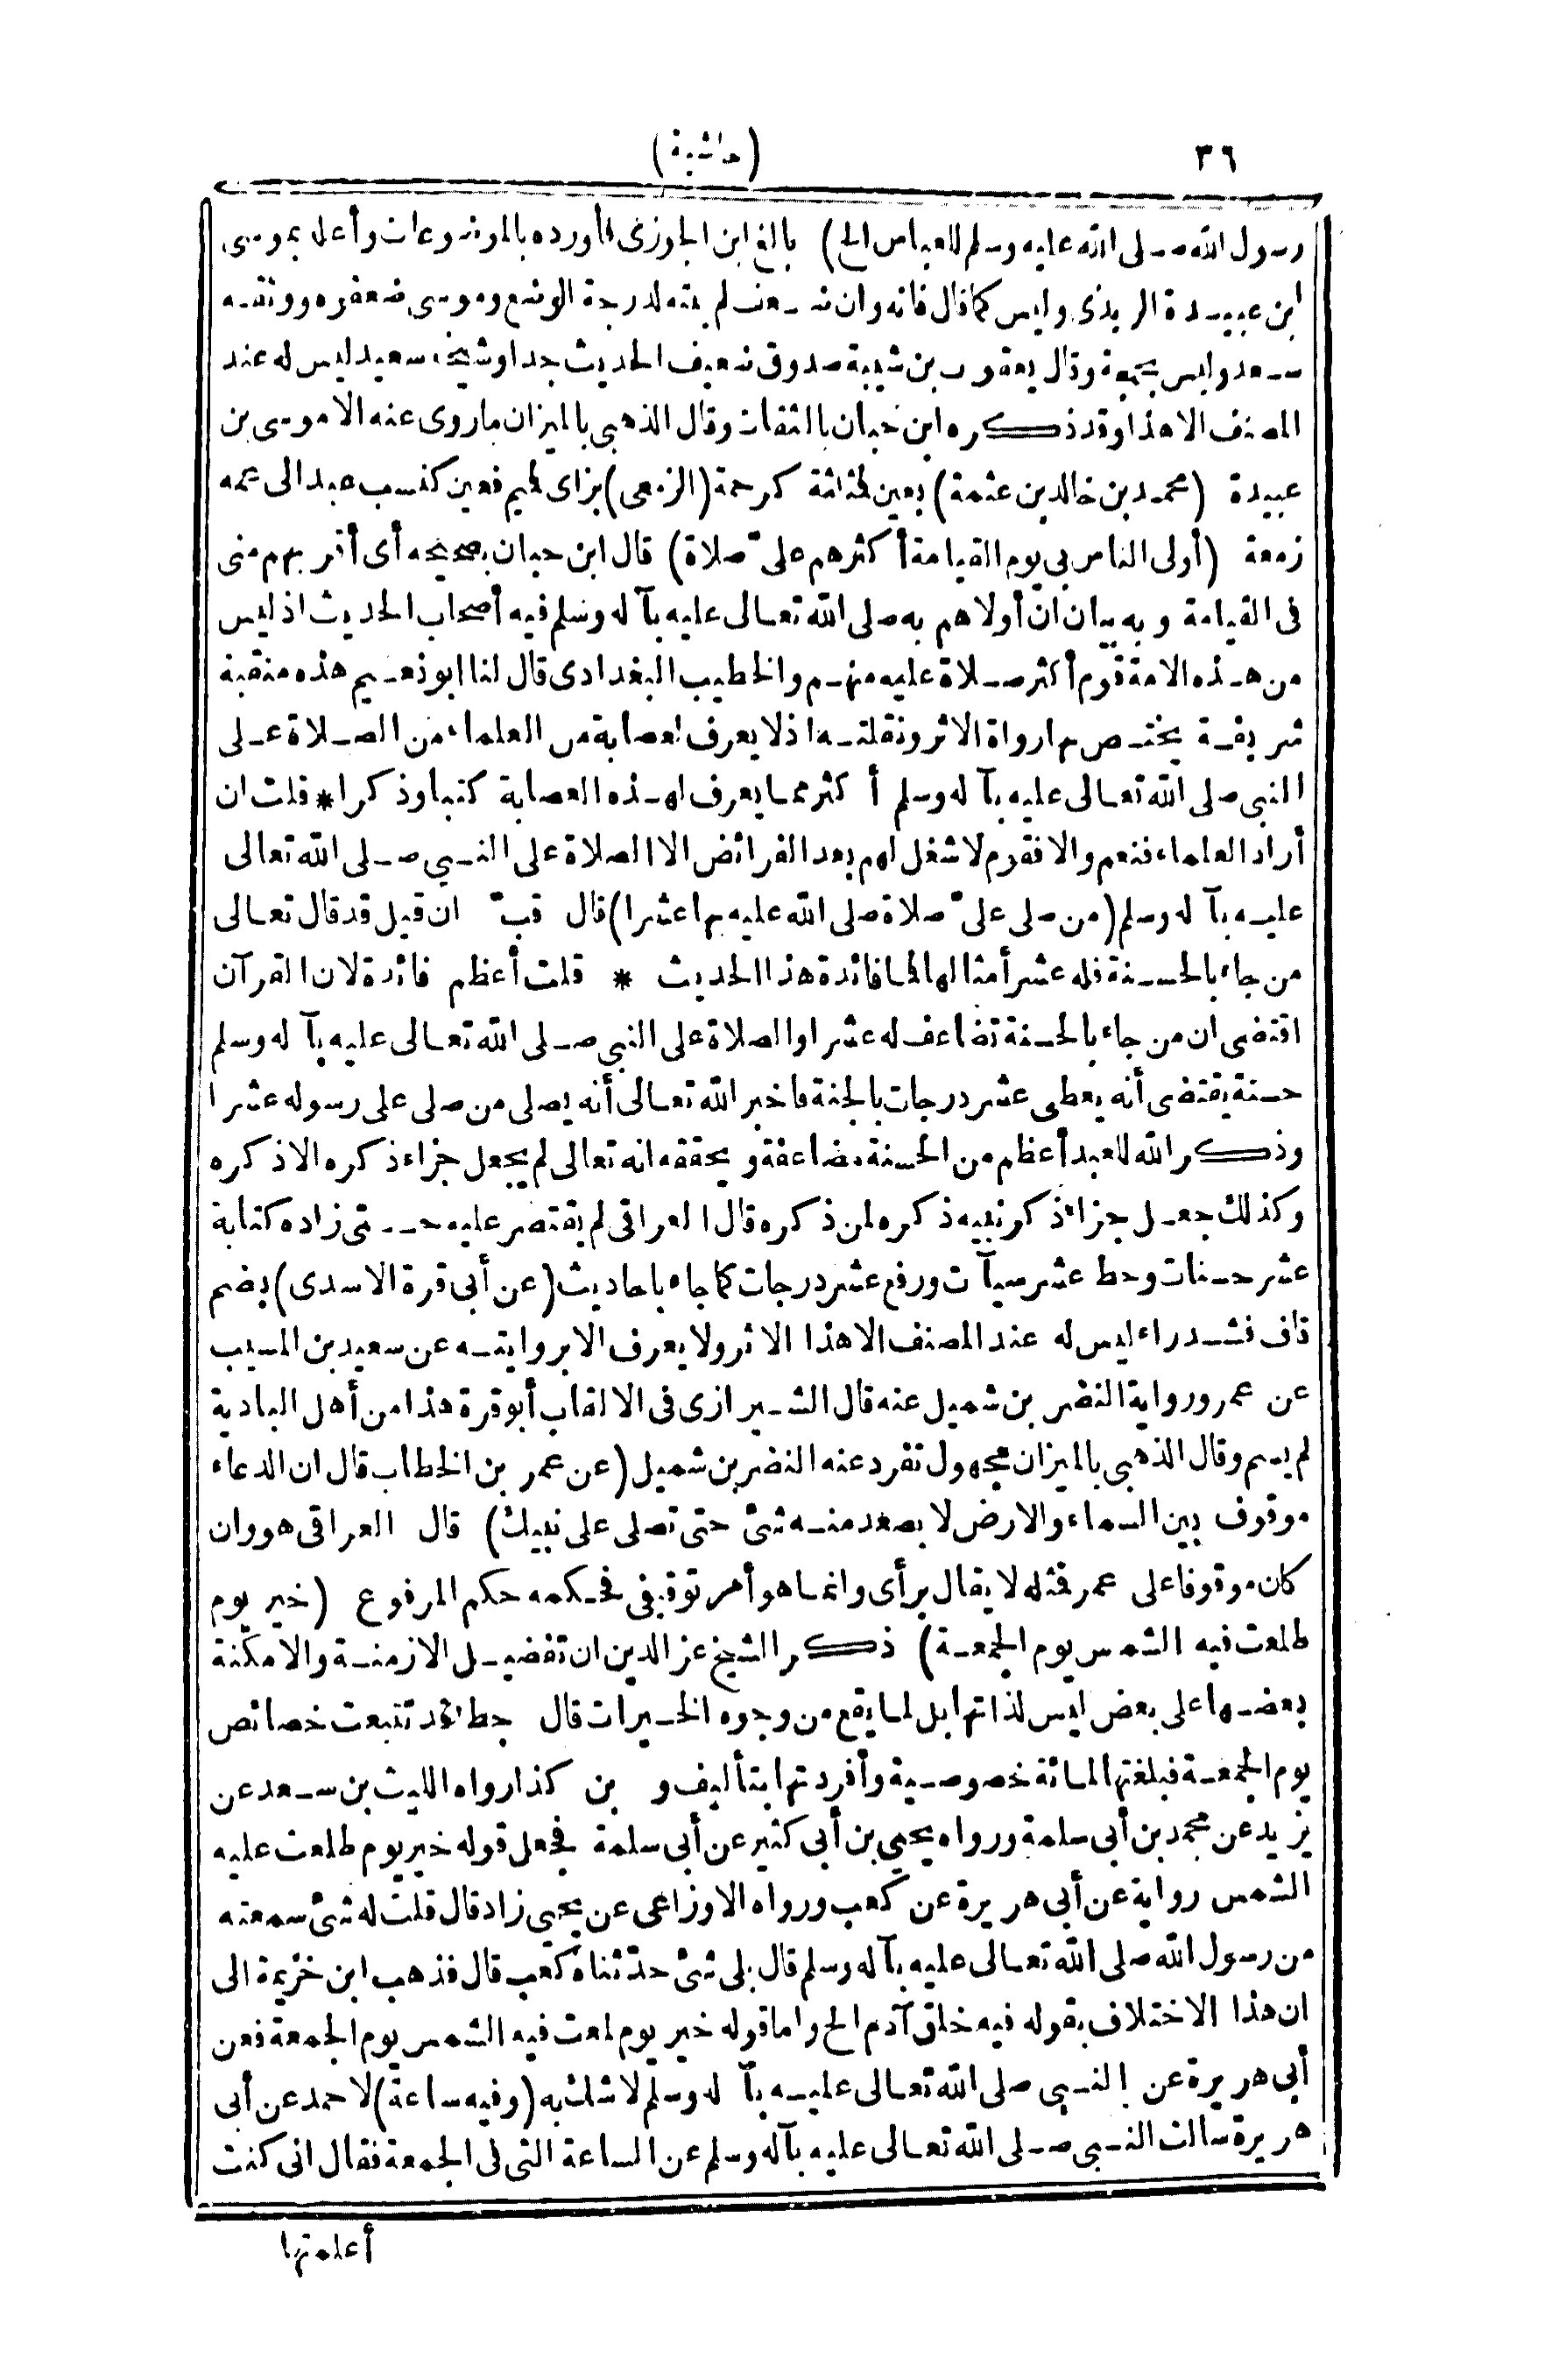 ٣٦
(حاشية)
رسول الله صلى الله عليه وسلم للعباس الخ) بالغ ابن الجوزى فأورده بالموضوعات وأعل بموسى
ابن عبيدة الربذى وليس كما قال فانه وان ضعف لم ينته لدرجة الوضع وموسى ضعفوه ووثقه
سعد وليس بحجة وقال يعقوب بن شيبة صدوق ضعيف الحديث جدا وشيخه سعيد ليس له عند
المصنف الا هذا وقد ذكره ابن حبان بالثقات وقال الذهبى بالميزان ماروى عنه الا موسى بن
عبيدة (محمد بن خالد بن عثمة) بعين فمثلثة كرحمة (الزمعى) بزاى فميم فعين كنسب عبد الى عمه
زمعة (أولى الناس بى يوم القيامة أكثرهم علىّ صلاة) قال ابن حبان بصحيحه أى أقربهم منى
فى القيامة وبه بيان ان أولاهم به صلى الله تعالى عليه بآله وسلم فيه أصحاب الحديث اذ ليس
من هذه الامة قوم أكثر صلاة عليه منهم والخطيب البغدادى قال لنا ابو نعيم هذه منقبة
شريفة يختص بها رواة الاثر ونقلتها اذ لا يعرف لعصابة من العلماء من الصلاة على
النبى صلى الله تعالى عليه بآله وسلم أكثر مما يعرف لهذه العصابة كتبا وذكرا * قلت ان
أراد العلماء فنعم والا فقوم لا شغل لهم بعد الفرائض الا الصلاة على النبى صلى الله تعالى
عليه بآله وسلم (من صلى علىّ صلاة صلى الله عليه بها عشرا) قال قبّ ان قيل قد قال تعالى
من جاء بالحسنة فله عشر أمثالها فما فائدة هذا الحديث * قلت أعظم فائدة لان القرآن
اقتضى ان من جاء بالحسنة تضاعف له عشرا والصلاة على النبى صلى الله تعالى عليه بآله وسلم
حسنة يقتضى أنه يعطى عشر درجات بالجنة فاخبر الله تعالى أنه يصلى من صلى على رسوله عشرا
وذكر الله للعبد أعظم من الحسنة مضاعفة ويحققه انه تعالى لم يجعل جزاء ذكره الا ذكره
وكذلك جعل جزاء ذكر نبيه ذكره لمن ذكره قال العراقى لم يقتصر عليه حتى زاده كتابة
عشر حسنات وحط عشر سيآت ورفع عشر درجات كما جاء باحاديث (عن أبى قرة الاسدى) بضم
قاف فشد راء ليس له عند المصنف الا هذا الاثر ولا يعرف الا بروايته عن سعيد بن المسيب
عن عمر ورواية النضر بن شميل عنه قال الشيرازى فى الالقاب أبو قرة هذا من أهل البادية
لم يسم وقال الذهبى بالميزان مجهول تفرد عنه النضر بن شميل (عن عمر بن الخطاب قال ان الدعاء
موقوف بين السماء والارض لا يصعد منه شئ حتى تصلى على نبيك) قال العراقى هو وان
كان موقوفا على عمر فمثله لا يقال برأى وانما هو أمر توقيفى فحكمه حكم المرفوع (خير يوم
طلعت فيه الشمس يوم الجمعة) ذكر الشيخ عز الدين ان تفضيل الازمنة والامكنة
بعضها على بعض ليس لذاتها بل لما يقع من وجوه الخيرات قال جط قد تتبعت خصائص
يوم الجمعة فبلغتها المائة خصوصية وأفردتها بتأليف و بن كذا رواه الليث بن سعد عن
يزيد عن محمد بن أبى سلمة ورواه يحيى بن أبى كثير عن أبى سلمة فجعل قوله خير يوم طلعت عليه
الشمس رواية عن أبى هريرة عن كعب ورواه الاوزاعى عن يحيى زاد قال قلت له شئ سمعته
من رسول الله صلى الله تعالى عليه بآله وسلم قال بلى شئ حدّثناه كعب قال فذهب ابن خزيمة الى
ان هذا الاختلاف بقوله فيه خلق آدم الخ واما قوله خير يوم لعت فيه الشمس يوم الجمعة فعن
أبى هريرة عن النبى صلى الله تعالى عليه بآله وسلم لا شك به (وفيه ساعة) لاحمد عن أبى
هريرة سالت النبى صلى الله تعالى عليه بآله وسلم عن الساعة التى فى الجمعة فقال انى كنت
أعلمتها